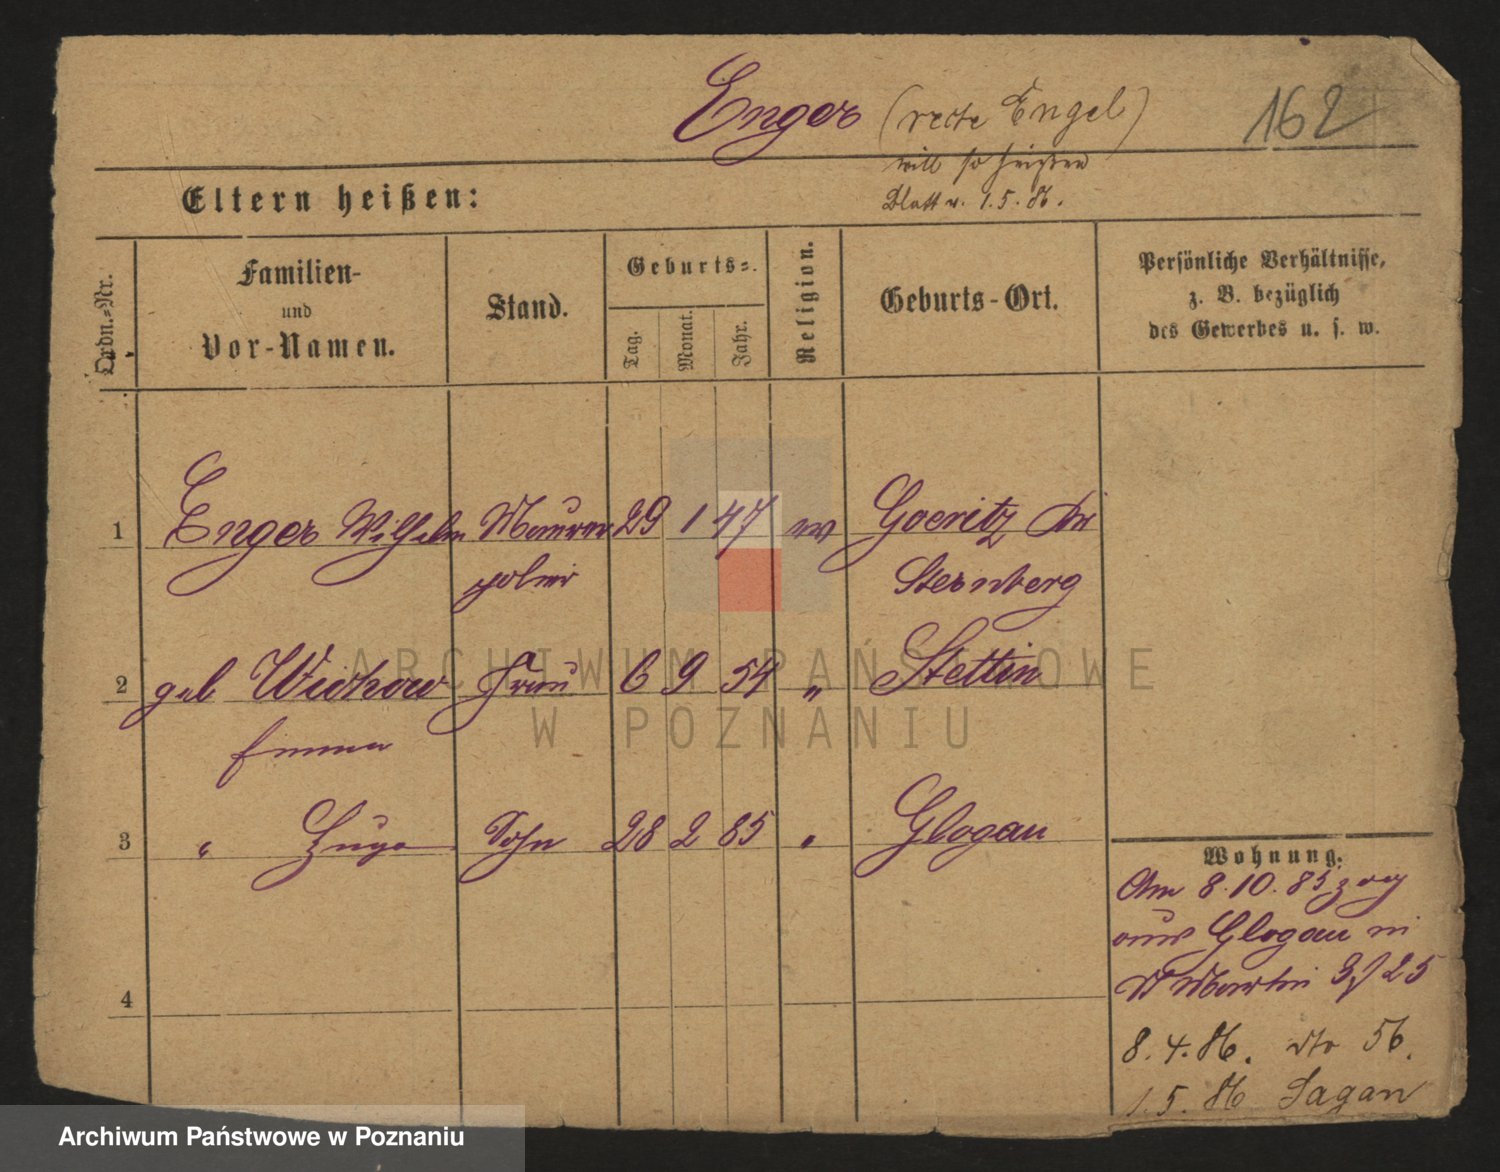 Enger (recte Engel) 162
will so heißen
Blatt v. 1.5.86.
Eltern heißen:
Ordn.=Nr.
Familien-
und
Vor-Namen.
Stand.
Geburts=.
Tag.
Monat.
Jahr.
Religion.
Geburts-Ort.
Persönliche Verhältnisse,
z. B. bezüglich
des Gewerbes u. s. w.
1 Enger Wilhelm Maurer 29 1 47 Goeritz Kr
polier Sternberg
2 geb Wichow Frau 6 9 54 " Stettin
Emma
3 " Hugo Sohn 28 2 85 " Glogau
4
Wohnung.
Am 8.10.85 zog
aus Glogau in
St Martin 25
8.4.86. dto 56.
1.5.86 Sagan
ARCHIWUM PAŃSTWOWE
W POZNANIU
Archiwum Państwowe w Poznaniu